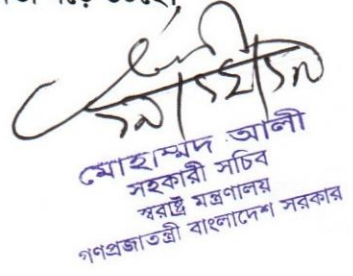 মোহাম্মদ আলী
সহকারী সচিব
স্বরাষ্ট্র মন্ত্রণালয়
গণপ্রজাতন্ত্রী বাংলাদেশ সরকার